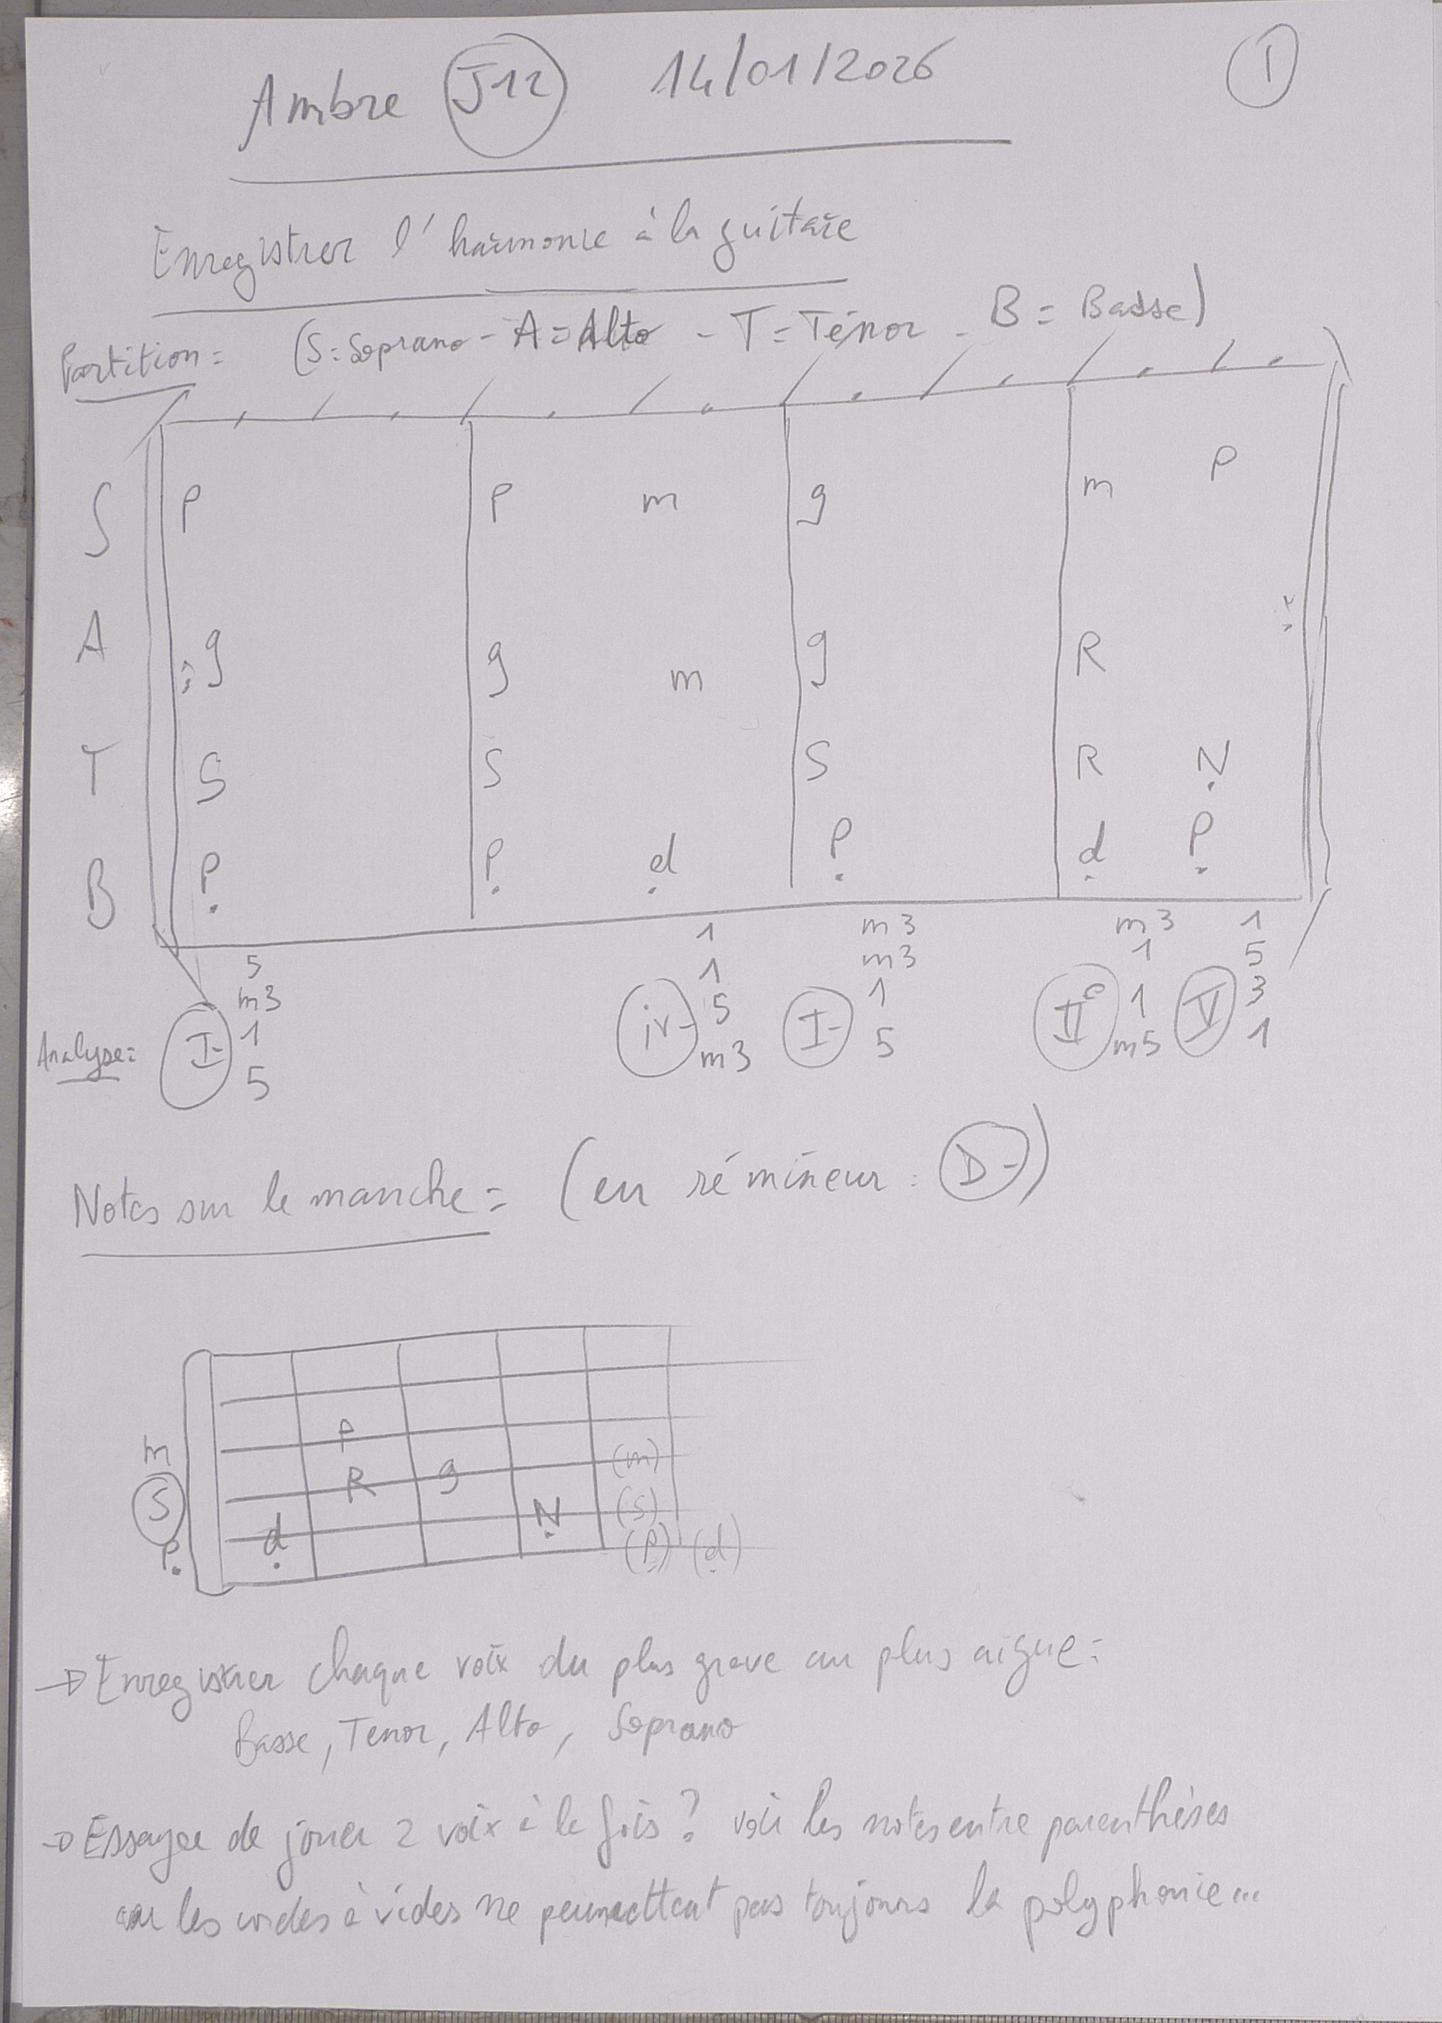 Ambre J12 14/01/2026 I
Enregistrer l'harmonie à la guitare
Partition = (S = Soprano - A = Alto - T = Ténor - B = Basse)
S P P m g m P
A : g g m g R :
T S S S R N
B P P d P d P
5 1 m3 m3 1
m3 1 m3 1 5
Analyse = I- 1 iv- 5 I- 1 II° 1 V 3
5 m3 5 m5 1
Notes sur le manche = (en ré mineur : D-)
P
m R g (m)
S d N (S)
P (P) (d)
→ Enregistrer chaque voix du plus grave au plus aigue :
Basse, Tenor, Alto, Soprano
→ Essayer de jouer 2 voix à la fois ? voir les notes entre parenthèses
car les cordes à vides ne permettent pas toujours la polyphonie...